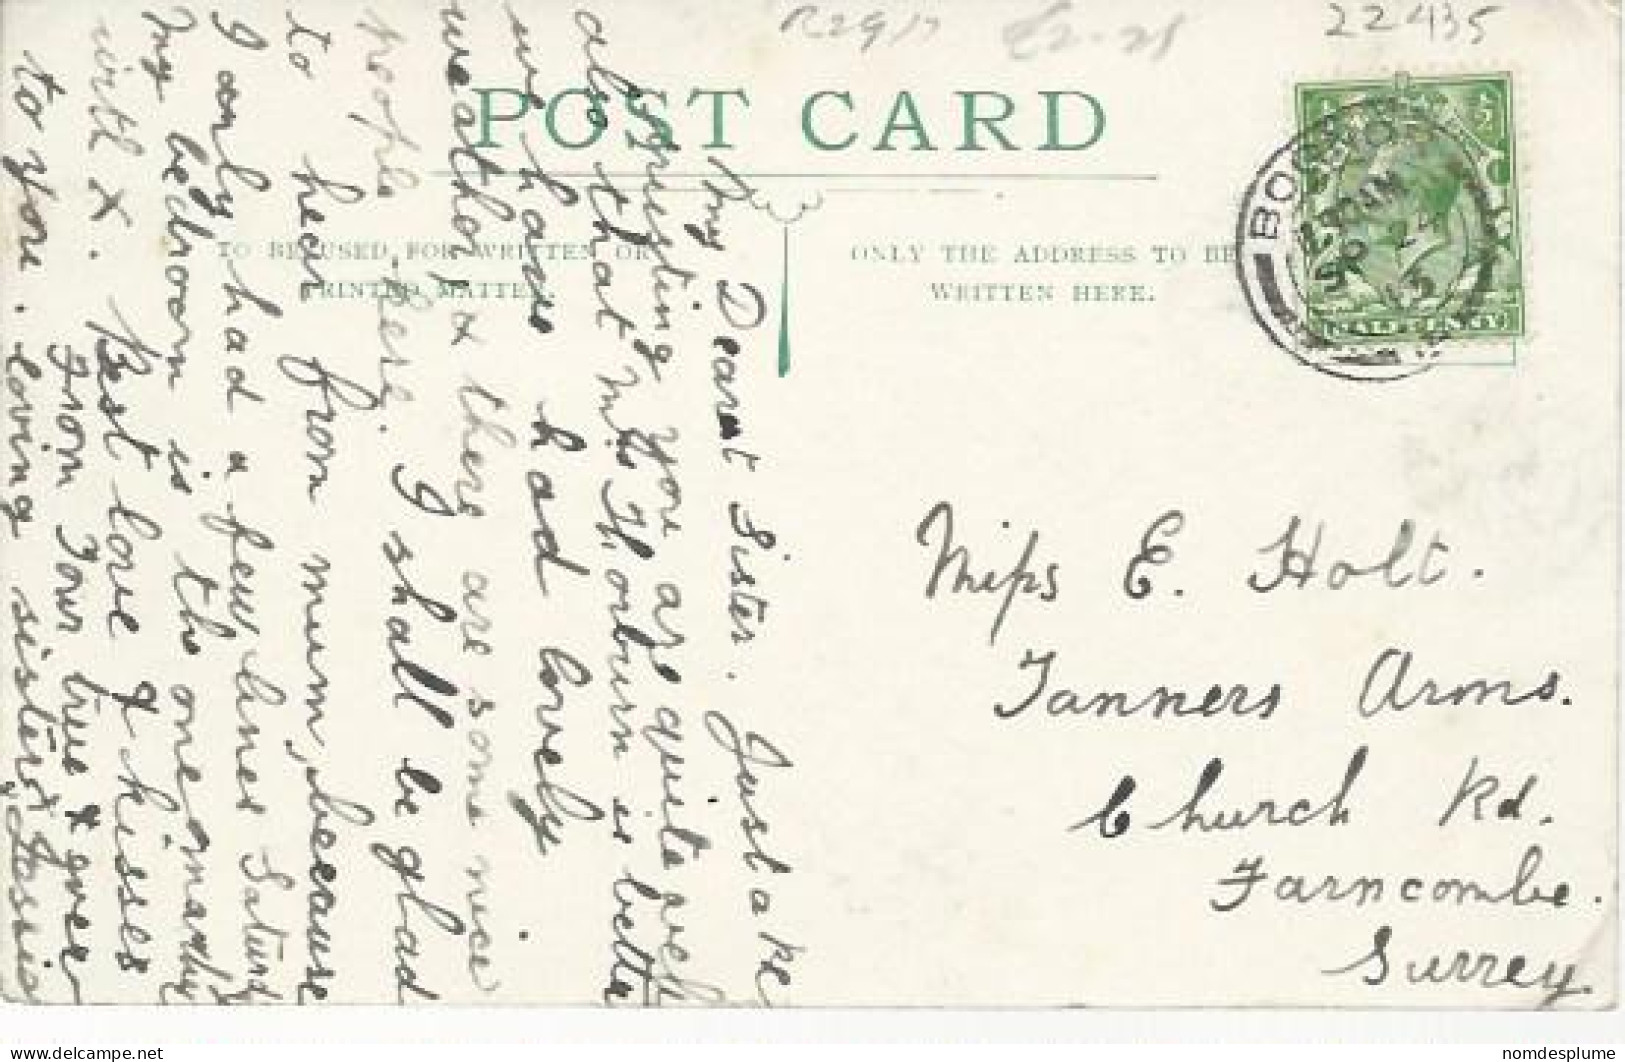 R2917 £2-25 22435
POST CARD
TO BE USED FOR WRITTEN OR
PRINTED MATTER.
ONLY THE ADDRESS TO BE
WRITTEN HERE.
BOGNOR
24
13
HALFPENNY
My Dearest Sister. Just a PC
trusting you are quite well
also that Mrs Hourburn is better
we have had lovely
weather, & there are some nice
people here. I shall be glad
to hear from mum, because
I only had a few lines Saturd
My bedroom is the one
with X. Best love & kisses
from your true & ever
loving sister
to you.
Miss E. Holt.
Tanners Arms.
Church Rd.
Farncombe.
Surrey.
delcampe.net
nomdesplume